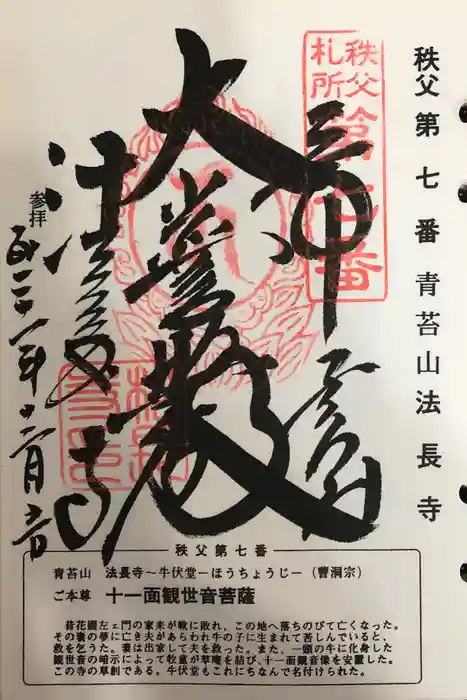 秩父第七番 青苔山法長寺
秩父
札所
第七番
奉拝
大悲殿
法長寺
参拝
秩父第七番
青苔山 法長寺～牛伏堂ーほうちょうじー（曹洞宗）
ご本尊 十一面観世音菩薩
昔花園左ェ門の家来が戦に敗れ、この地へ落ちのびて亡くなった。
その妻の夢に亡き夫があらわれ牛の子に生まれて苦しんでいると、
救を乞うた。妻は出家して夫を救った。また、一頭の牛に化身した
観世音の暗示によって牧童が草庵を結び、十一面観音像を安置した。
この寺の草創である。牛伏堂もこれにちなんで名付けられた。